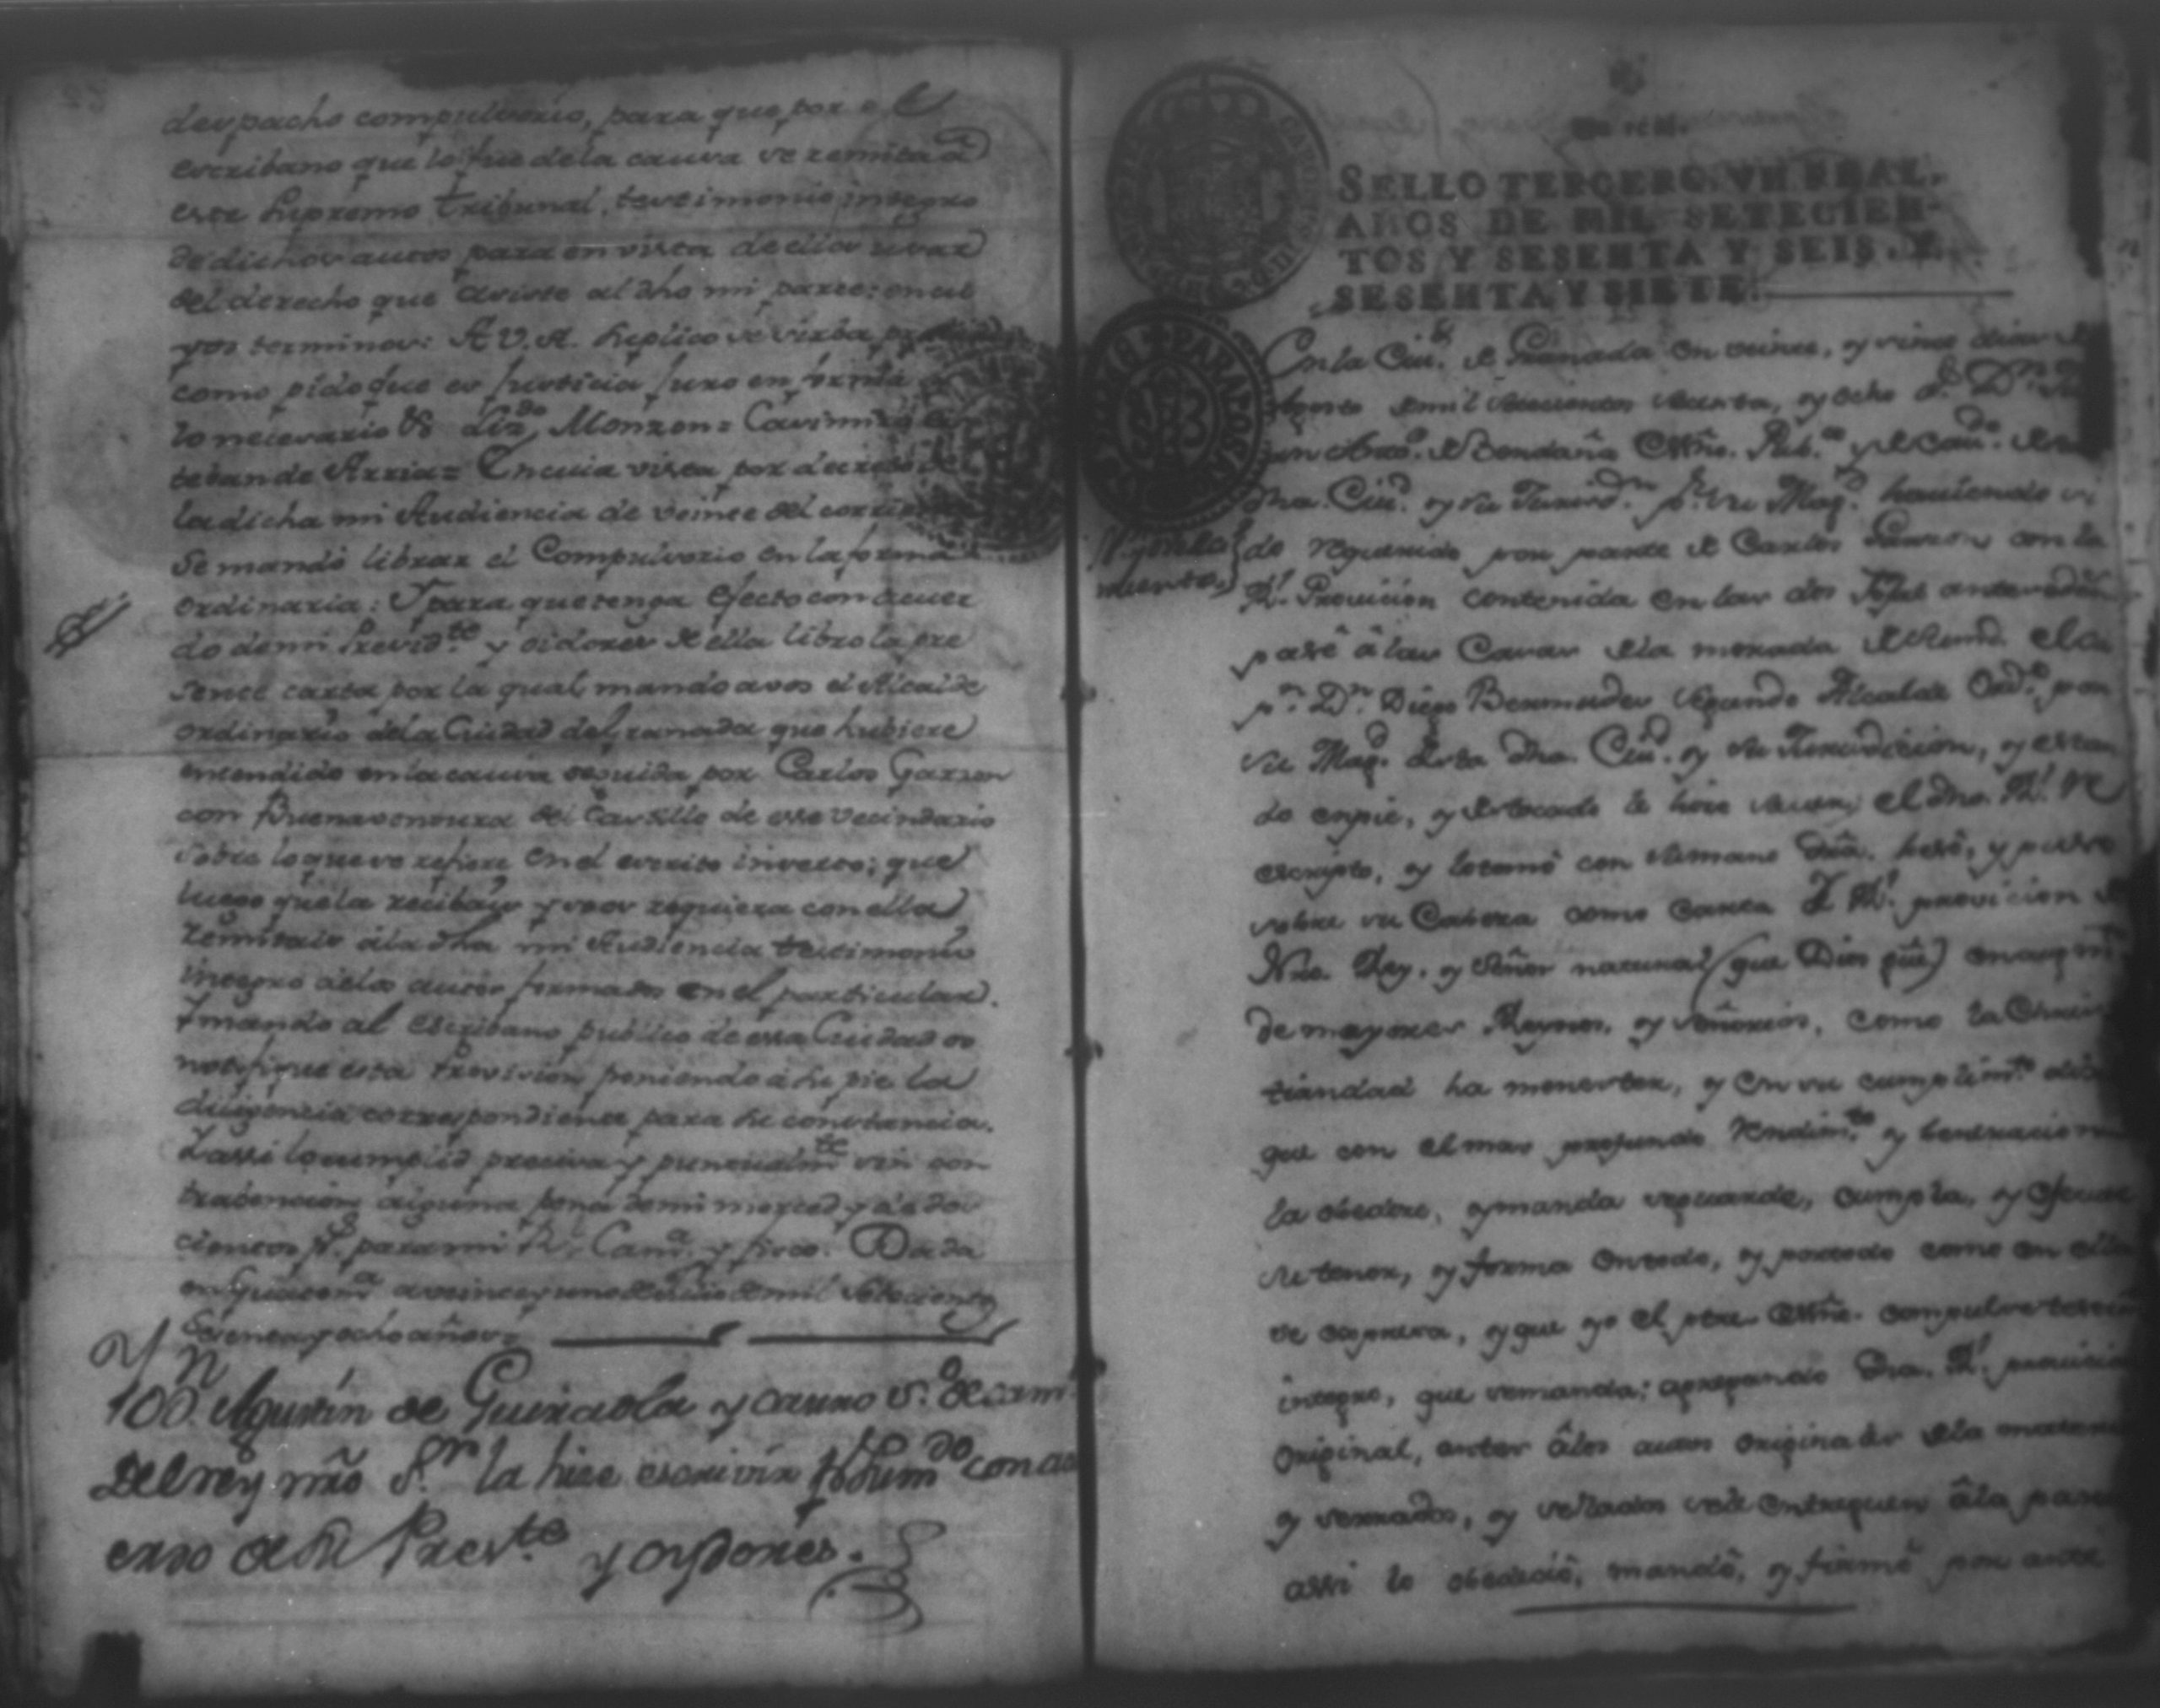 despacho compulsorio, para que por el
escribano que lo fue dela causa se remita â
este Supremo tribunal, testimonio integro
de dichos autos para en vista de ellos usar
del derecho que asiste al dho mi parte: en cu
yos terminos: A V. A. suplico se sirba
como pido que es Justicia Juro en forma
lo necesario &ª Lizdo Monzon = Casimiro Es
teban de Arria = En cuia vista por decreto de
la dicha mi Audiencia de veinte del corriente
Se mandó librar el Compulsorio en la forma
ordinaria: Y para que tenga efecto con acuer
do demi Presidte y oidores de ella libro la pre
sente carta por la qual mando a vos el Alcalde
ordinario de la Ciudad de Granada que hubiere
entendido en la causa seguida por Carlos Garzon
con Buenaventura del Castillo de ese vecindario
sobre lo que se refiere en el escrito inserto; que
luego que la recibais y seos requiera con ella
remitais a la dha mi Audiencia testimonio
integro de los autos formados en el particular.
Y mando al escribano publico de essa Ciudad os
notifique esta Provision poniendo a su pie la
diligencia correspondiente para su constancia.
Y assi lo cumplid precisa y puntualmte sin con
trabencion alguna pena demi merced y de dos
cientos ps. para mi Rl. Cama. y fisco. Dada
en Guatema. a veinte y uno de Julio de mil setecientos
Sesenta y ocho años =
Yo Dn Agustin de Guiraola y Castro sno. de cam
Del rey nro Sr. la hice escrivir por su mdo con acu
erdo de su Preste. y oydores.
SELLO TERCERO, VN REAL,
AÑOS DE MIL SETECIEN-
TOS Y SESENTA Y SEIS, Y
SESENTA Y SIETE.
En la Ciud. de Granada en veinte, y cinco dias de
Agosto de mil setecientos sesenta, y ocho as. Dn.
de Bendaña Essño. Pubco. y de Cavdo. de
dha. Ciud. y su Jurisdn. pr. su Magd. haviendo si
Requeri
miento
do requerido por parte de Carlos Garzon con la
Rl. Provicion contenida en las dos foxas antecedtes
pasé â las Casas de la morada del Ca
pn. Dn. Diego Bermudes segundo Alcalde Ordo. por
su Magd. de esta dha. Ciud. y su Jurisdiccion, y estan
do en pie, y destocado le hise saver el dho. Rl. Re
escripto, y lo tomó con su mano dra. besó, y puso
sobre su Cabeza como carta de Rl. provicion de
Nro. Rey, y señor natural (que Dios gûe) en augmto
de mayores Reynos, y señorios, como la Chris
tiandad ha menester, y en su cumplimto. dixo
que con el mas profundo rendimto. y beneracion
la obedece, y manda se guarde, cumpla, y execute
su tenor, y forma en todo, y por todo como en ella
se expresa, y que yo el pte. Essño. compulse testimo
integro, que se manda; agregando dha. Rl. provicion
original, antes â los autos originales de la materia
y serrados, y sellados se le entreguen â la parte
assi lo obedeció, mandó, y firmó por ante